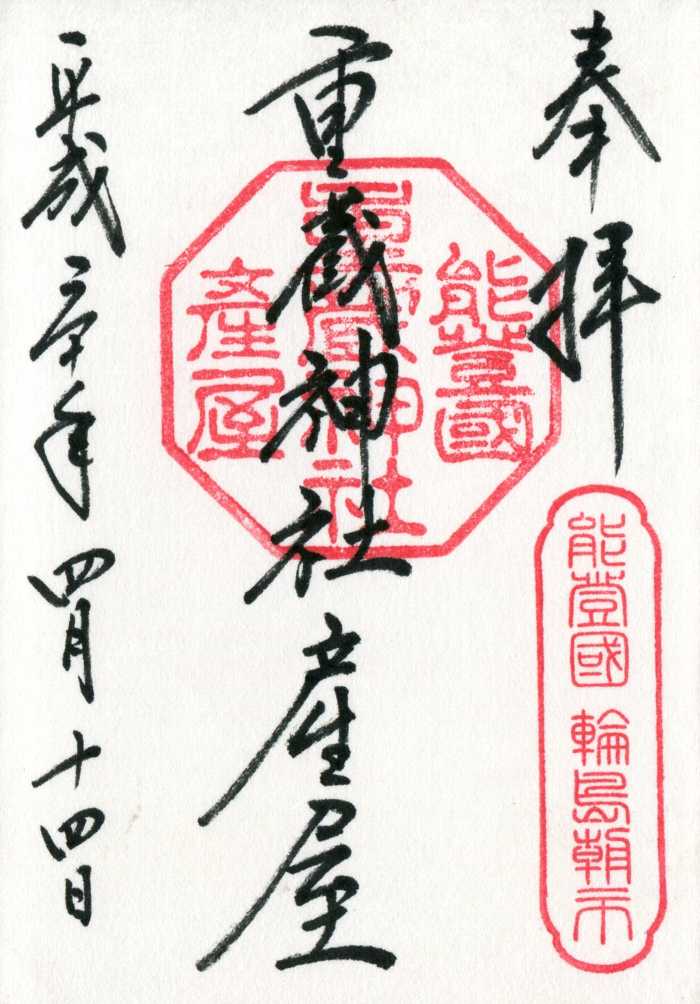 奉拝
能登國 輪島朝市
重蔵神社産屋
能登國
重蔵神社
産屋
平成三十年四月十四日